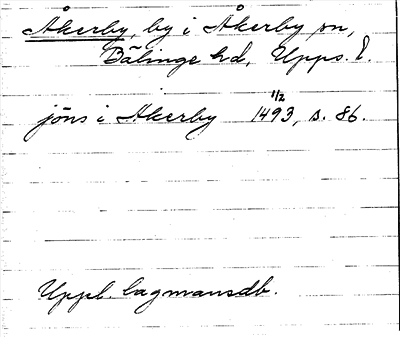 Åkerby, by i Åkerby sn,
Bälinge hd, Upps. l.
jöns i Akerby 1/2 1493, s. 86.
Uppl. lagmansdb.